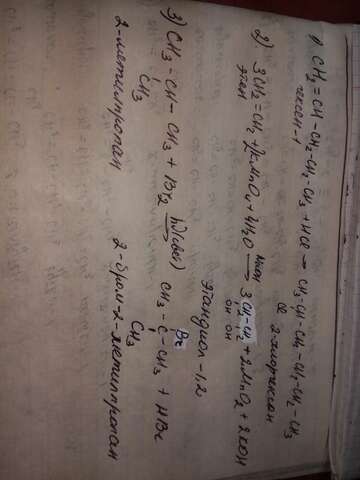 1) CH2=CH-CH2-CH2-CH3 + HCl → CH3-CH-CH2-CH2-CH2-CH3
гексен-1
Cl 2-хлоргексан
2) 3CH2=CH2 + 2KMnO4 + 4H2O → 3CH2-CH2 + 2MnO2 + 2KOH
этен
OH OH
этандиол-1,2
3) CH3-CH-CH3 + Br2 hν(свет) → CH3-C-CH3 + HBr
Br
CH3
CH3
2-метилпропан
2-бром-2-метилпропан